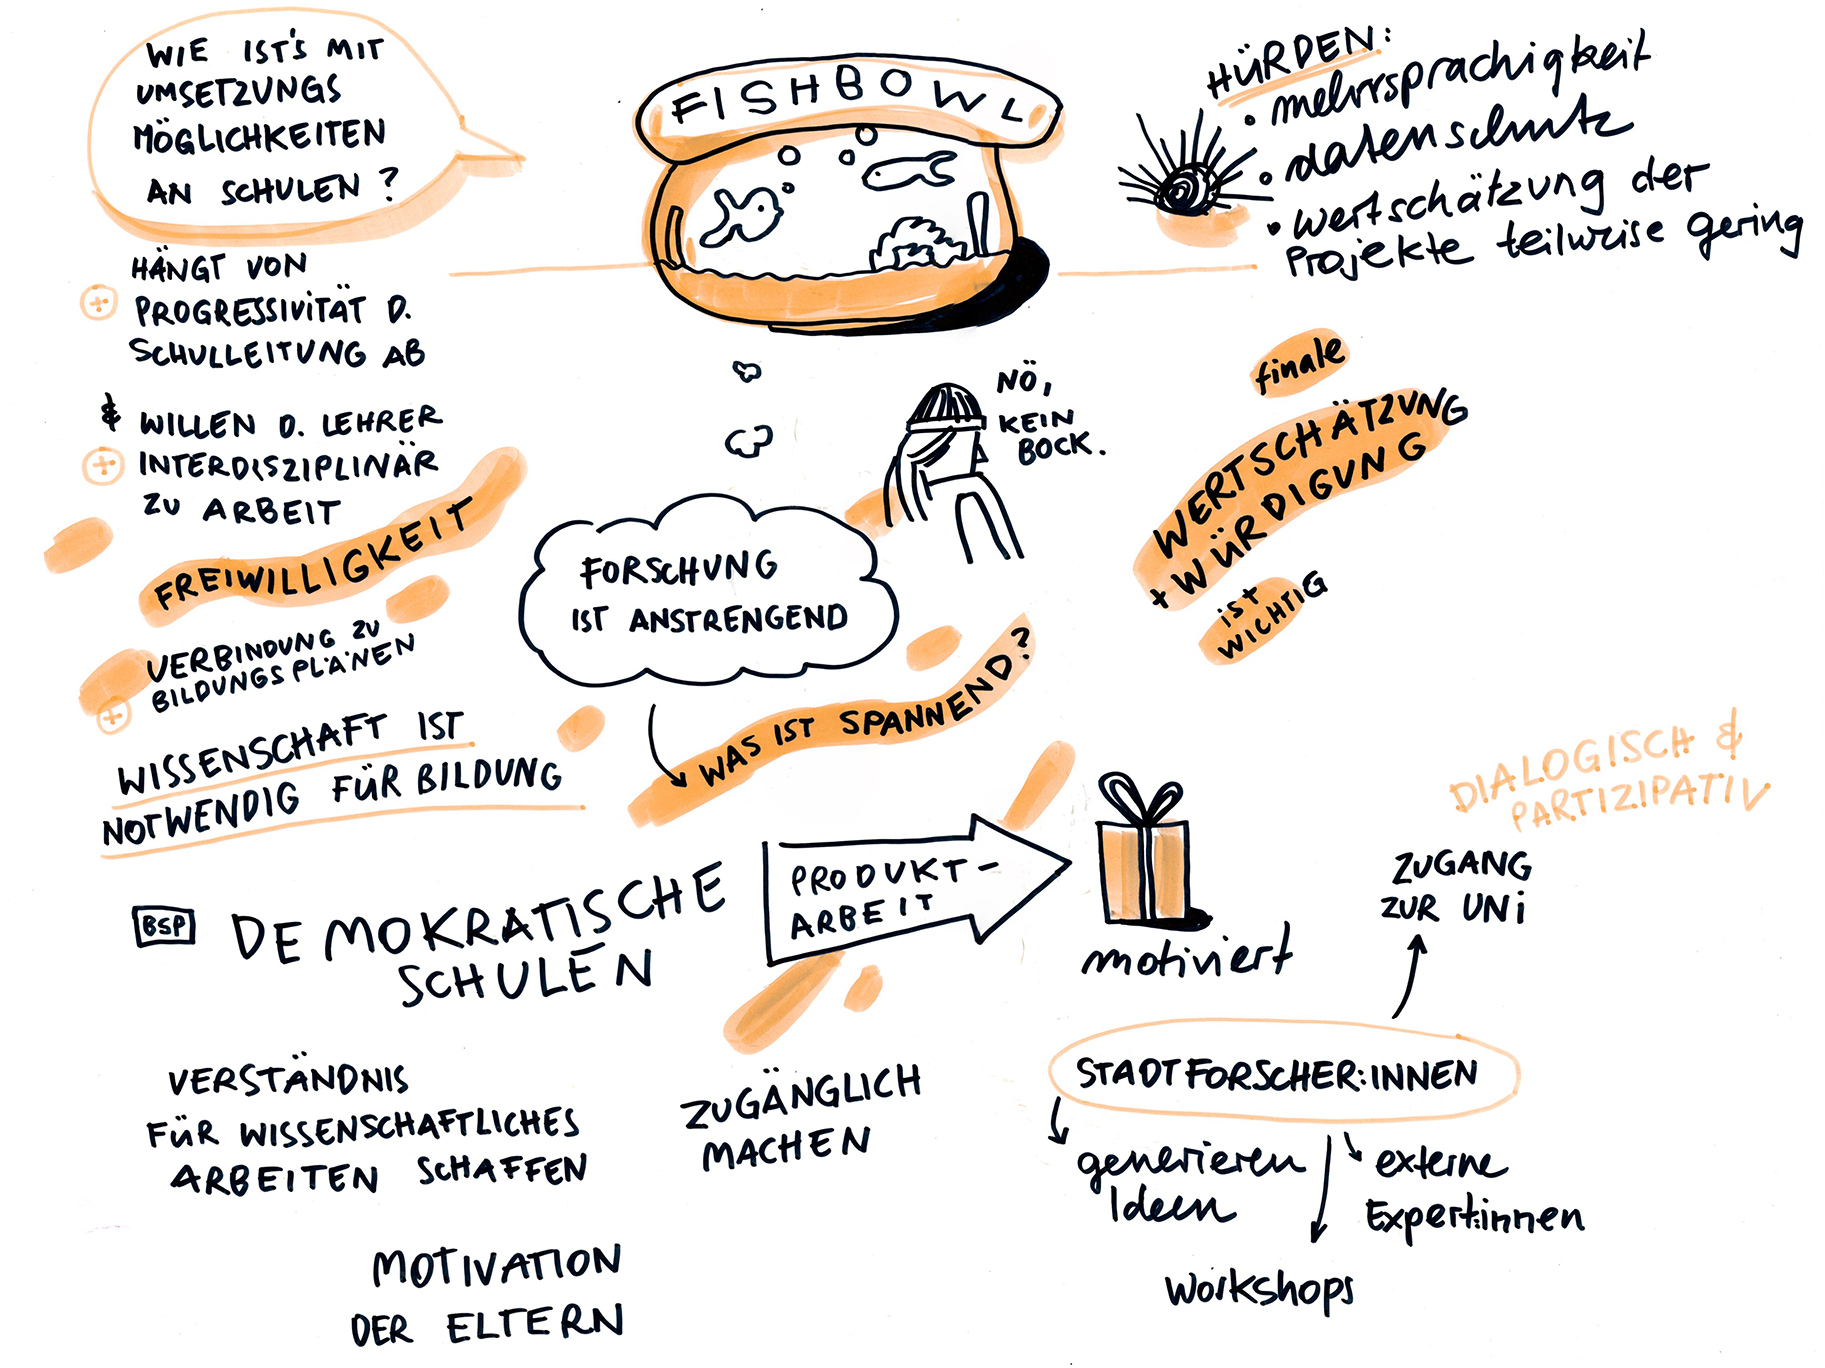 WIE IST'S MIT
UMSETZUNGS
MÖGLICHKEITEN
AN SCHULEN?
HÄNGT VON
PROGRESSIVITÄT D.
SCHULLEITUNG AB
& WILLEN D. LEHRER
INTERDISZIPLINÄR
ZU ARBEIT
FREIWILLIGKEIT
VERBINDUNG ZU
BILDUNGSPLÄNEN
WISSENSCHAFT IST
NOTWENDIG FÜR BILDUNG
FISHBOWL
NÖ,
KEIN
BOCK.
FORSCHUNG
IST ANSTRENGEND
WAS IST SPANNEND?
HÜRDEN:
• mehrsprachigkeit
• datenschutz
• wertschätzung der
Projekte teilweise gering
finale
WERTSCHÄTZUNG
+ WÜRDIGUNG
ist
WICHTIG
BSP
DEMOKRATISCHE
SCHULEN
PRODUKT-
ARBEIT
motiviert
DIALOGISCH &
PARTIZIPATIV
ZUGANG
ZUR UNI
STADTFORSCHER:INNEN
generieren
Ideen
externe
Expert:innen
Workshops
VERSTÄNDNIS
FÜR WISSENSCHAFTLICHES
ARBEITEN SCHAFFEN
ZUGÄNGLICH
MACHEN
MOTIVATION
DER ELTERN